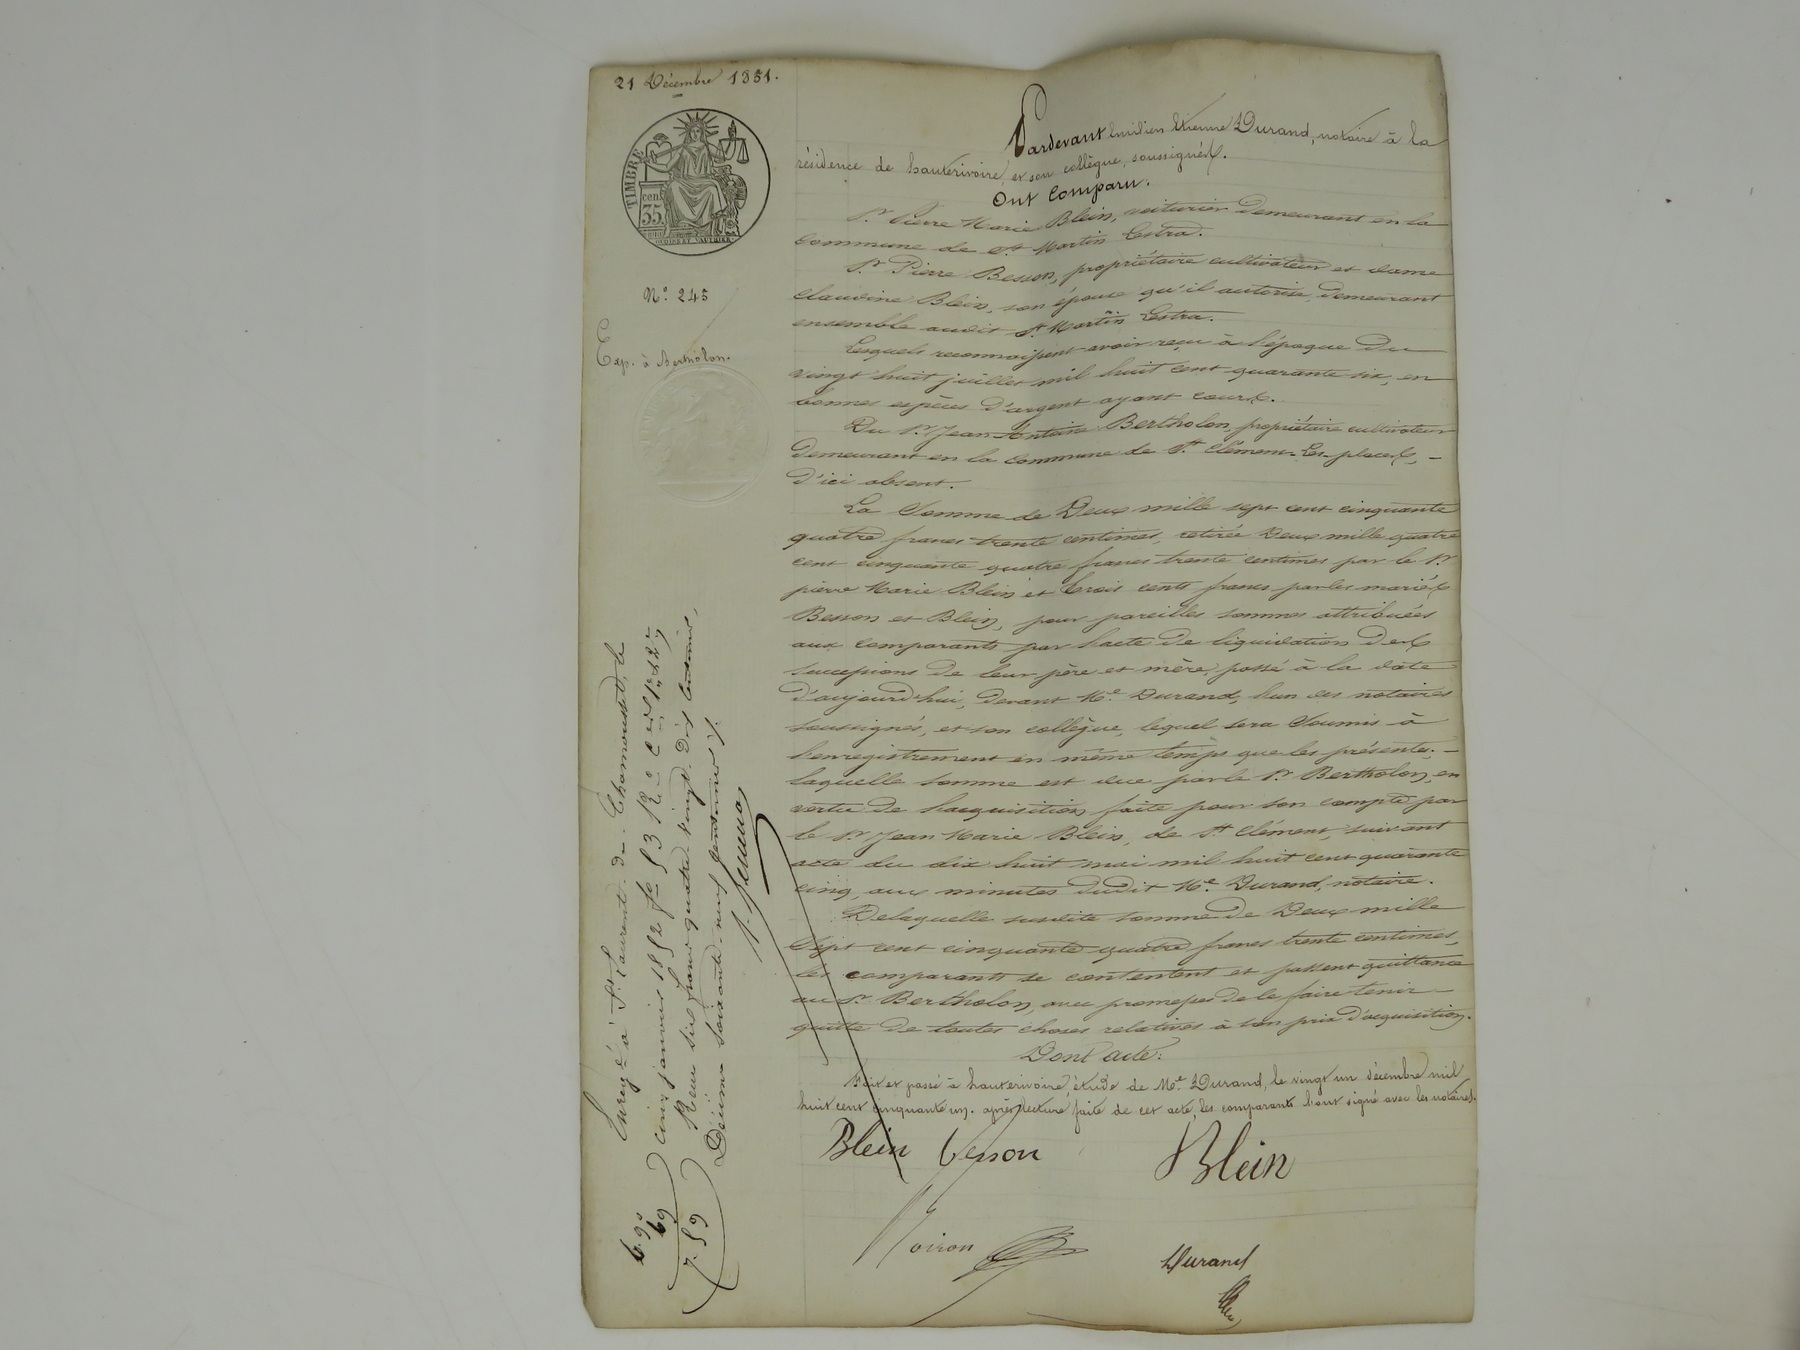 21 Décembre 1851.
TIMBRE
cent
35
N.o 245
Exp. à Bertholon.
Pardevant Emilien Etienne Durand, notaire à la
résidence de hauterivoire, et son collègue, soussignés.
Ont Comparu.
S.r Pierre Marie Blein, voiturier demeurant en la
Commune de S.t Martin Lestra.
S.r Pierre Besson, propriétaire cultivateur et dame
Claudine Blein, son épouse qu'il autorise, demeurant
ensemble audit S.t Martin Lestra.
Lesquels reconnaissent avoir reçu à l'époque du
vingt huit juillet mil huit cent quarante six, en
bonnes espèces d'argent ayant cours.
Du S.r Jean Antoine Bertholon, propriétaire cultivateur
demeurant en la commune de S.t Clément-Les-places, -
d'ici absent.
La Somme de Deux mille sept cent cinquante
quatre francs trente centimes, retirée Deux mille quatre
cent cinquante quatre francs trente centimes par le S.r
pierre Marie Blein et trois cents francs par les mariés
Besson et Blein, pour pareilles sommes attribuées
aux comparants par l'acte de liquidation des
successions de leur père et mère, passé à la date
d'aujourd'hui, devant M.e Durand, l'un des notaires
soussignés, et son collègue, lequel sera Soumis à
l'enregistrement en même temps que les présentes. -
laquelle somme est due par le S.r Bertholon, en
vertu de l'acquisition faite pour son compte par
le S.r Jean Marie Blein, de S.t Clément, suivant
acte du dix huit mai mil huit cent quarante
cinq, aux minutes dudit M.e Durand, notaire.
De laquelle susdite somme de Deux mille
Sept cent cinquante quatre francs trente centimes,
les comparants se contentent et passent quittance
au S.r Bertholon, avec promesses de le faire tenir
quitte de toutes choses relatives à son prix d'acquisition.
Dont acte:
Fait et passé à hauterivoire, étude de M.e Durand, le vingt un décembre mil
huit cent cinquante un. après lecture faite de cet acte, les comparants l'ont signé avec les notaires.
Blein besson Blein
Noiron
Durand
Enregé à St. Laurent de Chamousset, le
cinq janvier 1852 fo 53 Ro
Reçu six francs quatre-vingt dix centimes,
Décime soixante neuf centimes
6.90
69
7.59